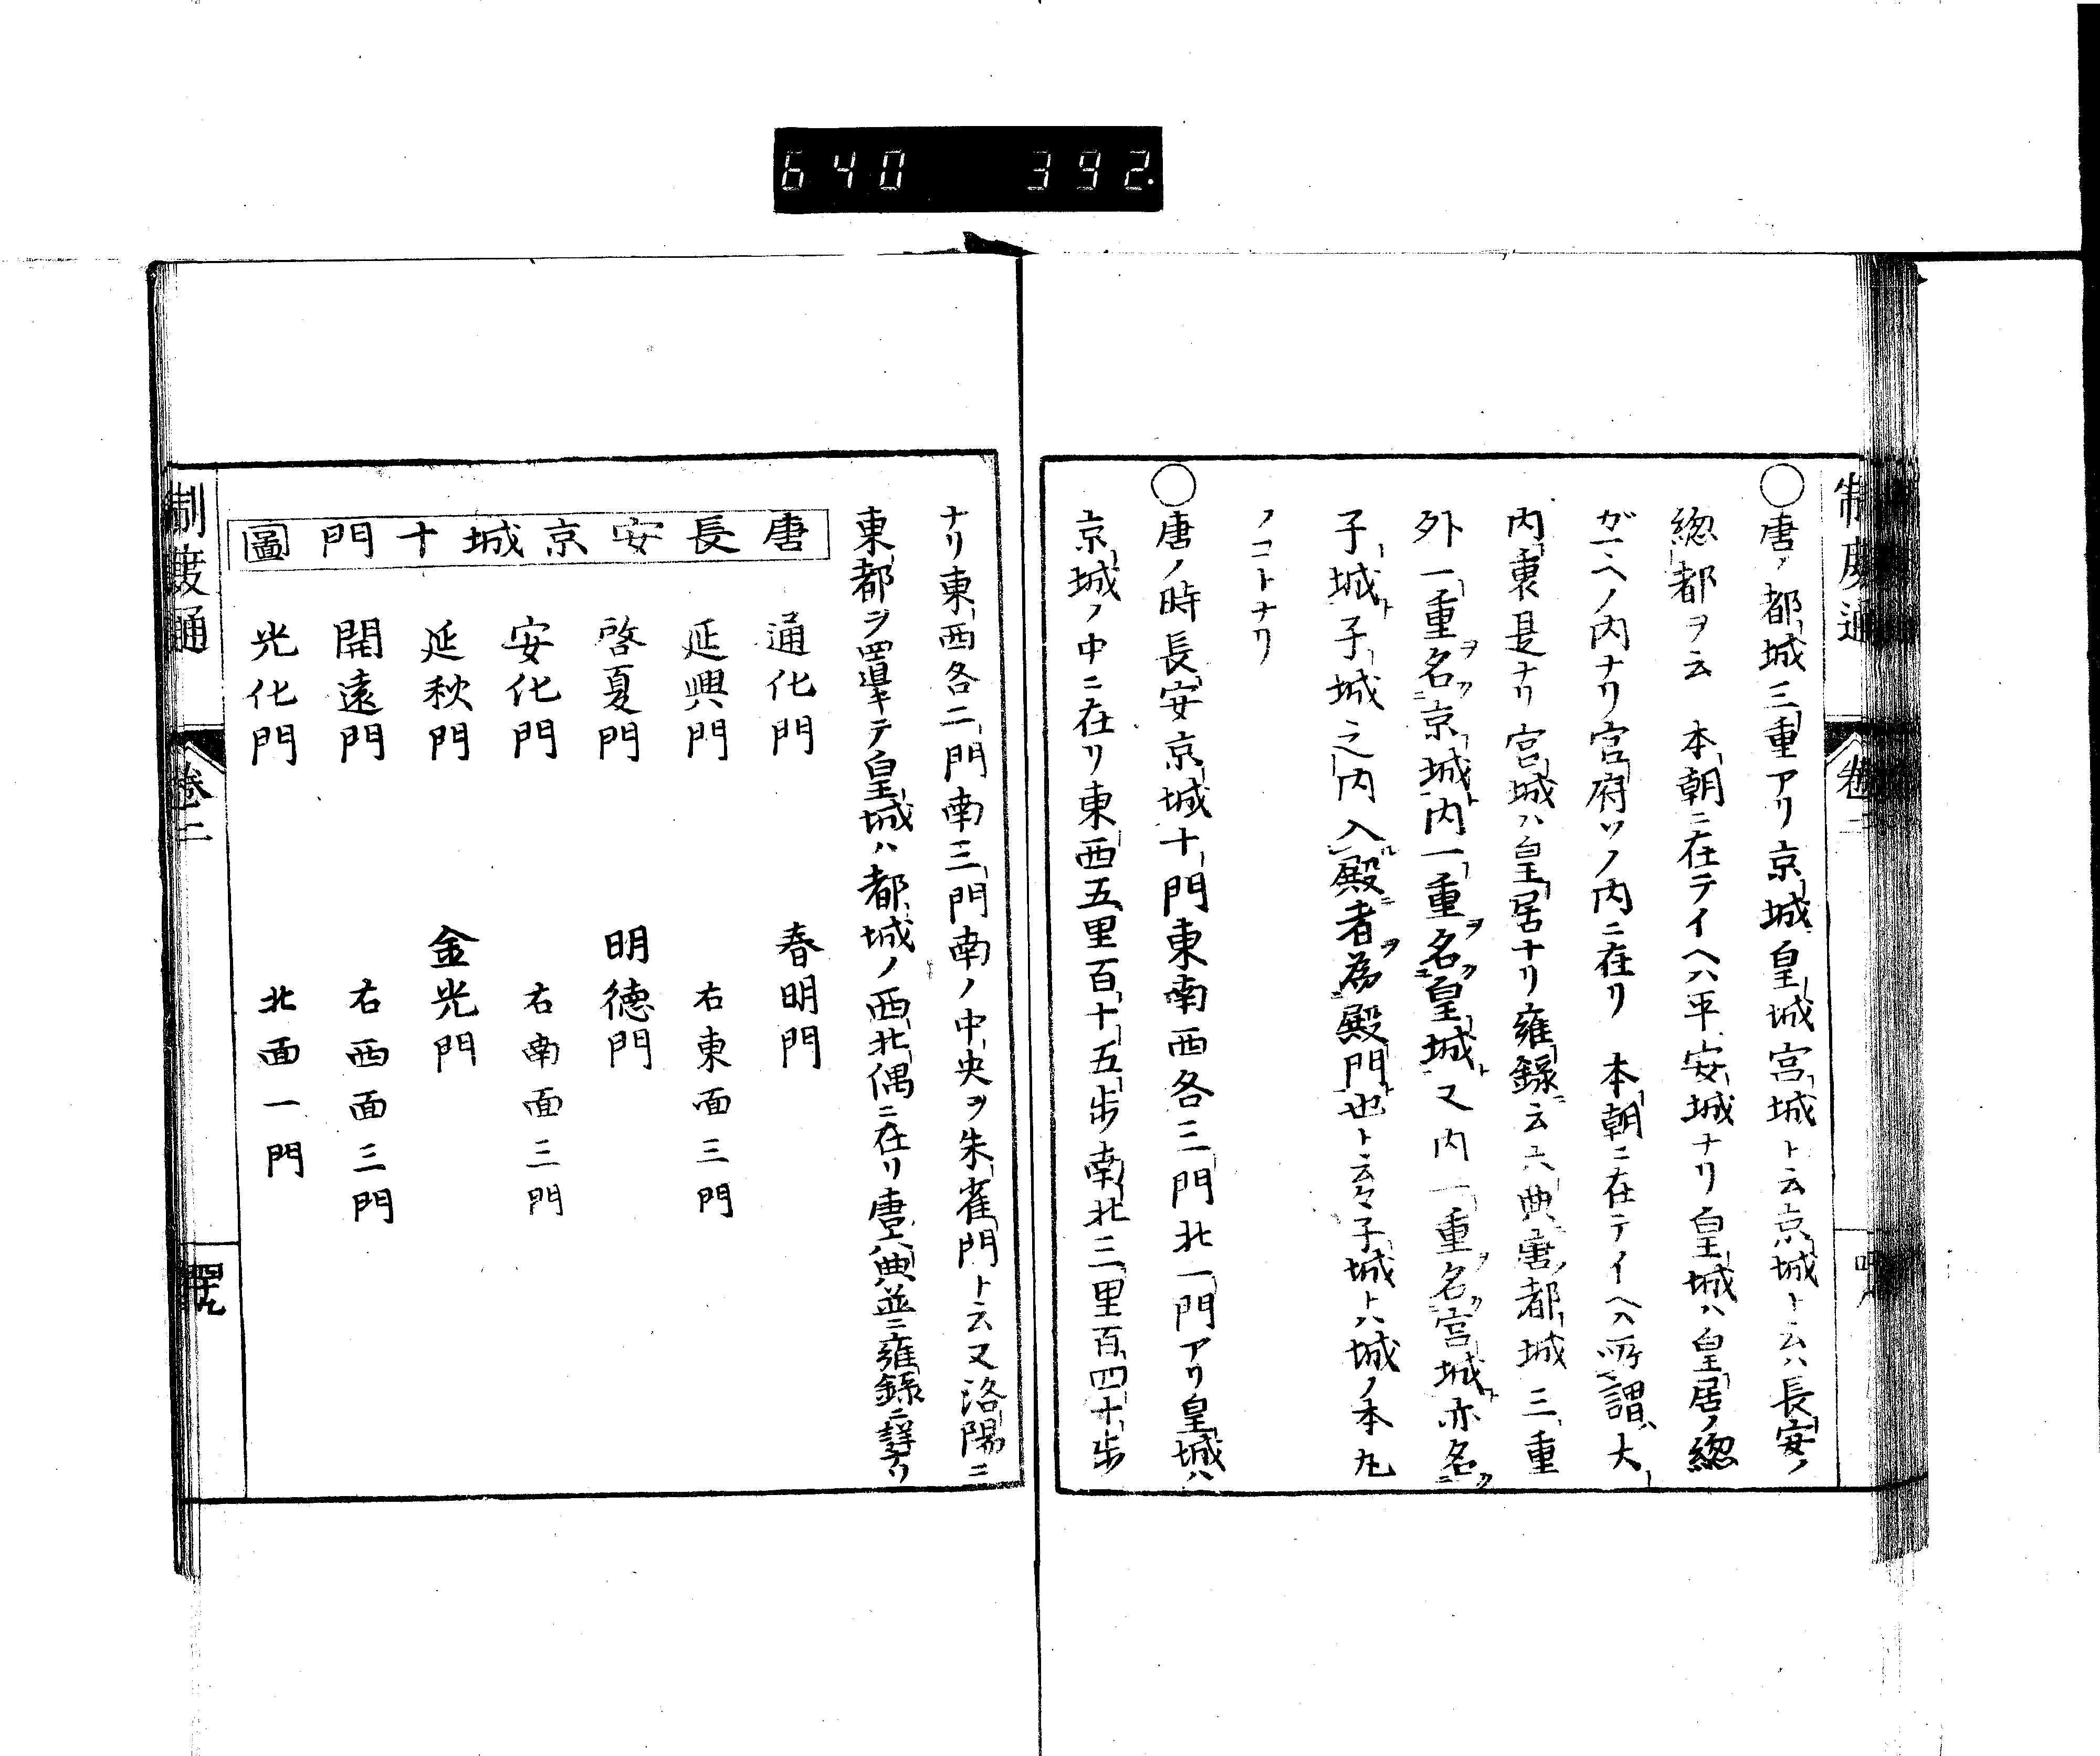 640 392.
制度通 卷二
〇唐ノ都城三重アリ京城皇城宮城ト云京城ト云ハ長安ノ
総都ヲ云 本朝ニ在テイヘハ平安城ナリ皇城ハ皇居ノ総
ガマヘノ内ナリ官府ソノ内ニ在リ 本朝ニ在テイヘハ所謂大
内裏是ナリ宮城ハ皇居ナリ雍録ニ云六典唐都城三重
外一重ヲ名ク京城ト内一重ヲ名ク皇城ト又内一重ヲ名ク宮城ト亦名ク
子城ト子城之内入殿者為殿門也ト云々子城トハ城ノ本丸
ノコトナリ
〇唐ノ時長安京城十門東南西各三門北一門アリ皇城ハ
京城ノ中ニ在リ東西五里百十五歩南北三里百四十歩
ナリ東西各二門南三門南ノ中央ヲ朱雀門ト云又洛陽ニ
東都ヲ置キテ皇城ハ都城ノ西北偶ニ在リ唐六典並ニ雍録ニ詳ナリ
唐長安京城十門圖
通化門 春明門
延興門 右東面三門
啓夏門 明德門
安化門 右南面三門
延秋門 金光門
開遠門 右西面三門
光化門 北面一門
制度通 卷二 四十九